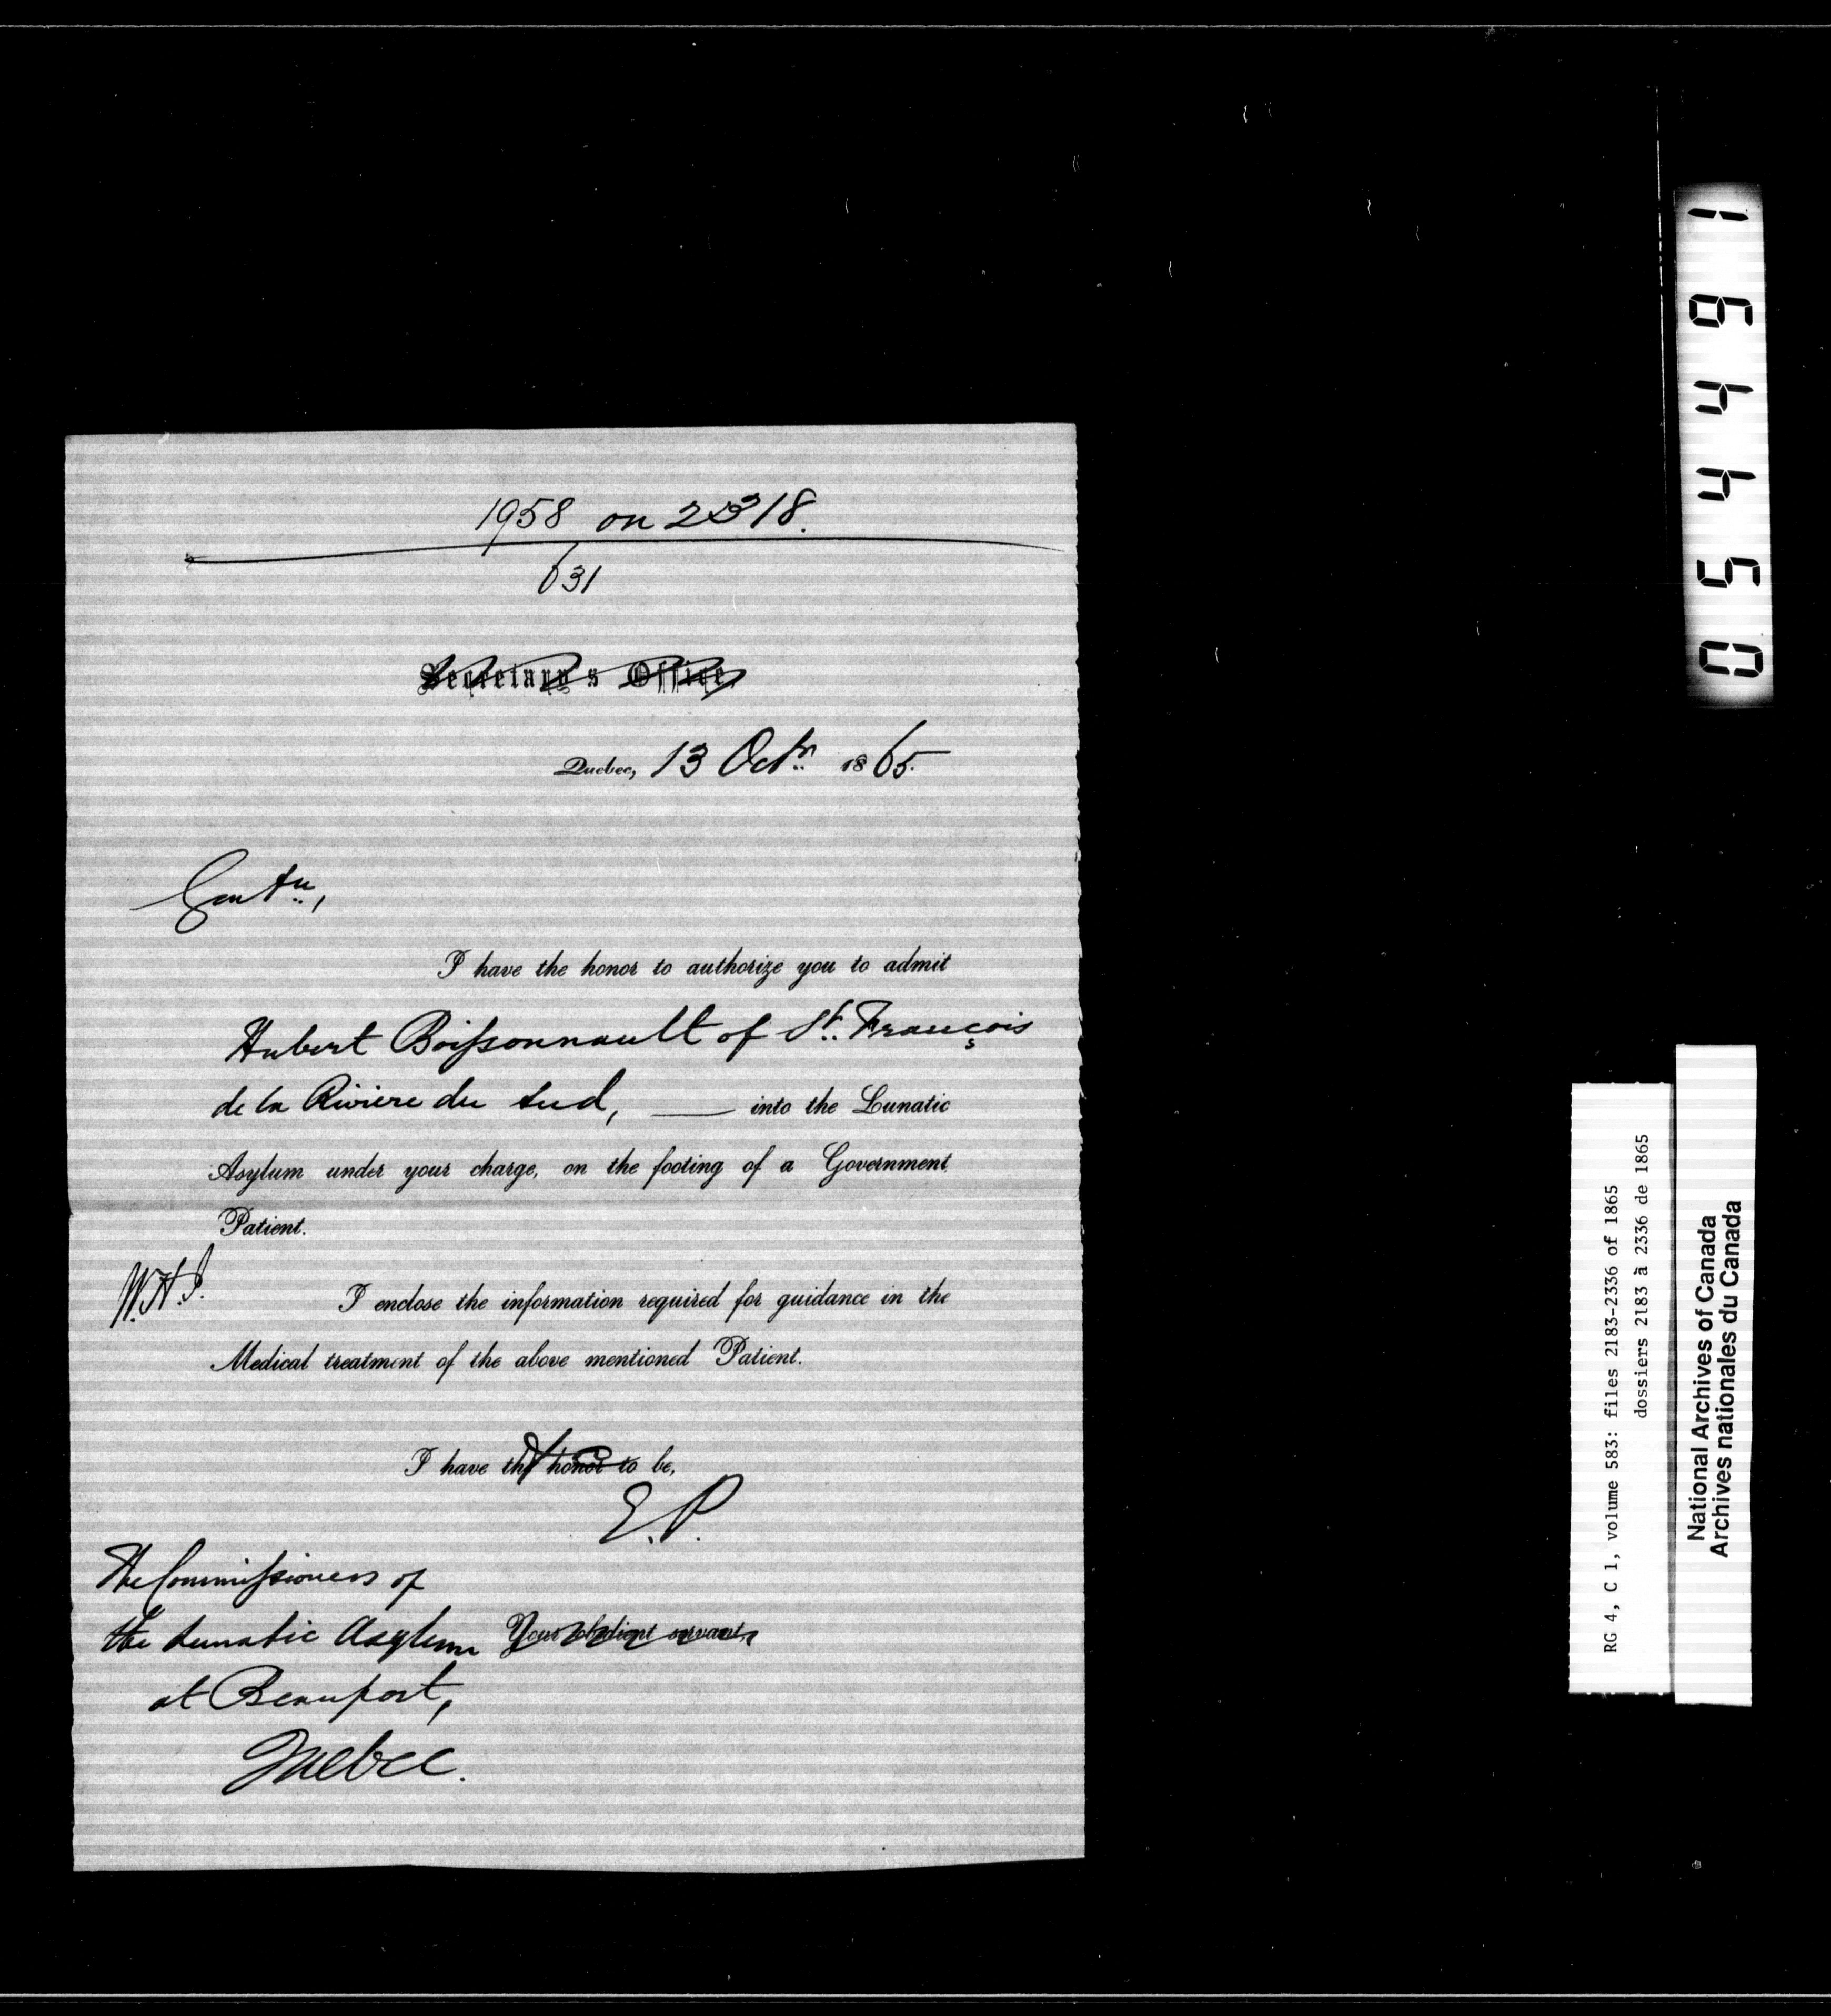 1958 on 2318.
631
Secretary's Office,
Quebec, 13 Octr. 1865.
Gentn.,
I have the honor to authorize you to admit
Hubert Boissonnault of St. François
de la Riviere du Sud, — into the Lunatic
Asylum under your charge, on the footing of a Government
Patient.
W.H.J.
I enclose the information required for guidance in the
Medical treatment of the above mentioned Patient.
I have the honor to be,
E.P.
The Commissioners of
the Lunatic Asylum
Your obedient servant,
at Beauport,
Quebec.
054461
RG 4, C 1, volume 583: files 2183-2336 of 1865
dossiers 2183 à 2336 de 1865
National Archives of Canada
Archives nationales du Canada